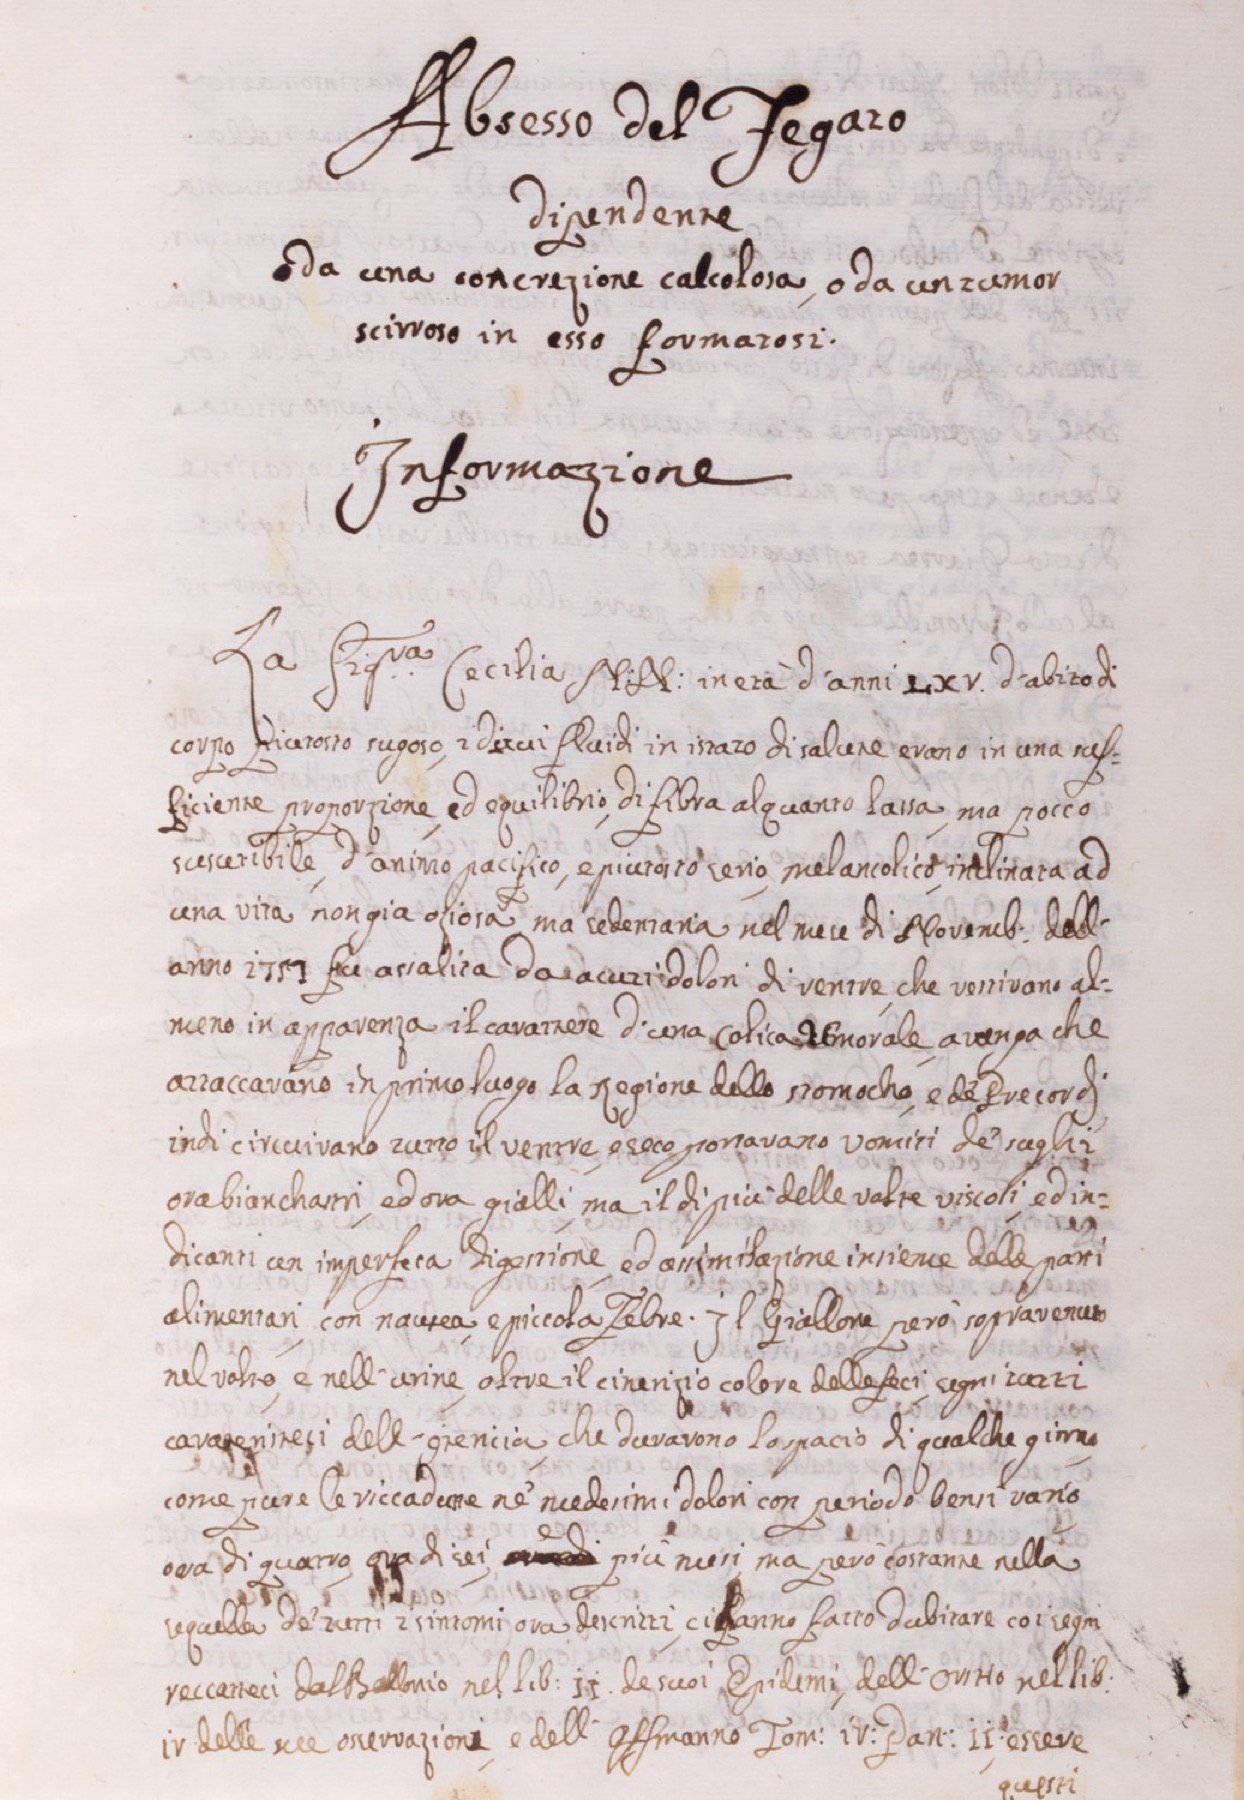 Absesso del Fegato
dipendente
o da una concrezione calcolosa, o da un tumor
scirroso in esso formatosi.
Informazione
La Sig.ra Cecilia N:N: in età d'anni LXV. d'abito di
corpo piutosto sugoso, i di cui fluidi in istato di salute erano in una suf=
ficiente proporzione, ed equilibrio, di fibra alquanto lassa, ma pocco
suscetibile, d'animo pacifico, e piutosto serio, melancolico, inclinata ad
una vita non gia oziosa, ma sedentaria nel mese di Novemb: dell'
anno 1757 fu assalita da acuti dolori di ventre, che vestivano al=
meno in apparenza il carattere d'una Colica Umorale, avenga che
attaccavano in primo luogo la Regione dello stomocho, e de' Precordj
indi circuivano tutto il ventre, e seco portavano vomiti de' sughi
ora bianchastri, ed ora gialli, ma il di più delle volte viscosi, ed in=
dicanti un imperfeta digestione, ed assimilazione insieme delle parti
alimentari, con nausea, e piccola Febre. Il Giallore però sopravenuto
nel volto, e nell'urine, oltre il cinerizio colore delle feci, segni tutti
carateristici dell'iterizia, che duravono lo spacio di qualche giorno,
come pure le riccadute ne' medesimi dolori con periodo bensì vario
ora di quatro, ora di sei, e di più mesi, ma però costante nella
sequella de' tutti i sintomi ora descritti, ci hanno fatto dubitare coi segni
reccatteci dal Ballonio nel lib: II. de suoi Epidemi, dell' nel lib:
IV delle sue osservazioni, e dell' Offmanno Tom: IV: Part: II: essere
questi